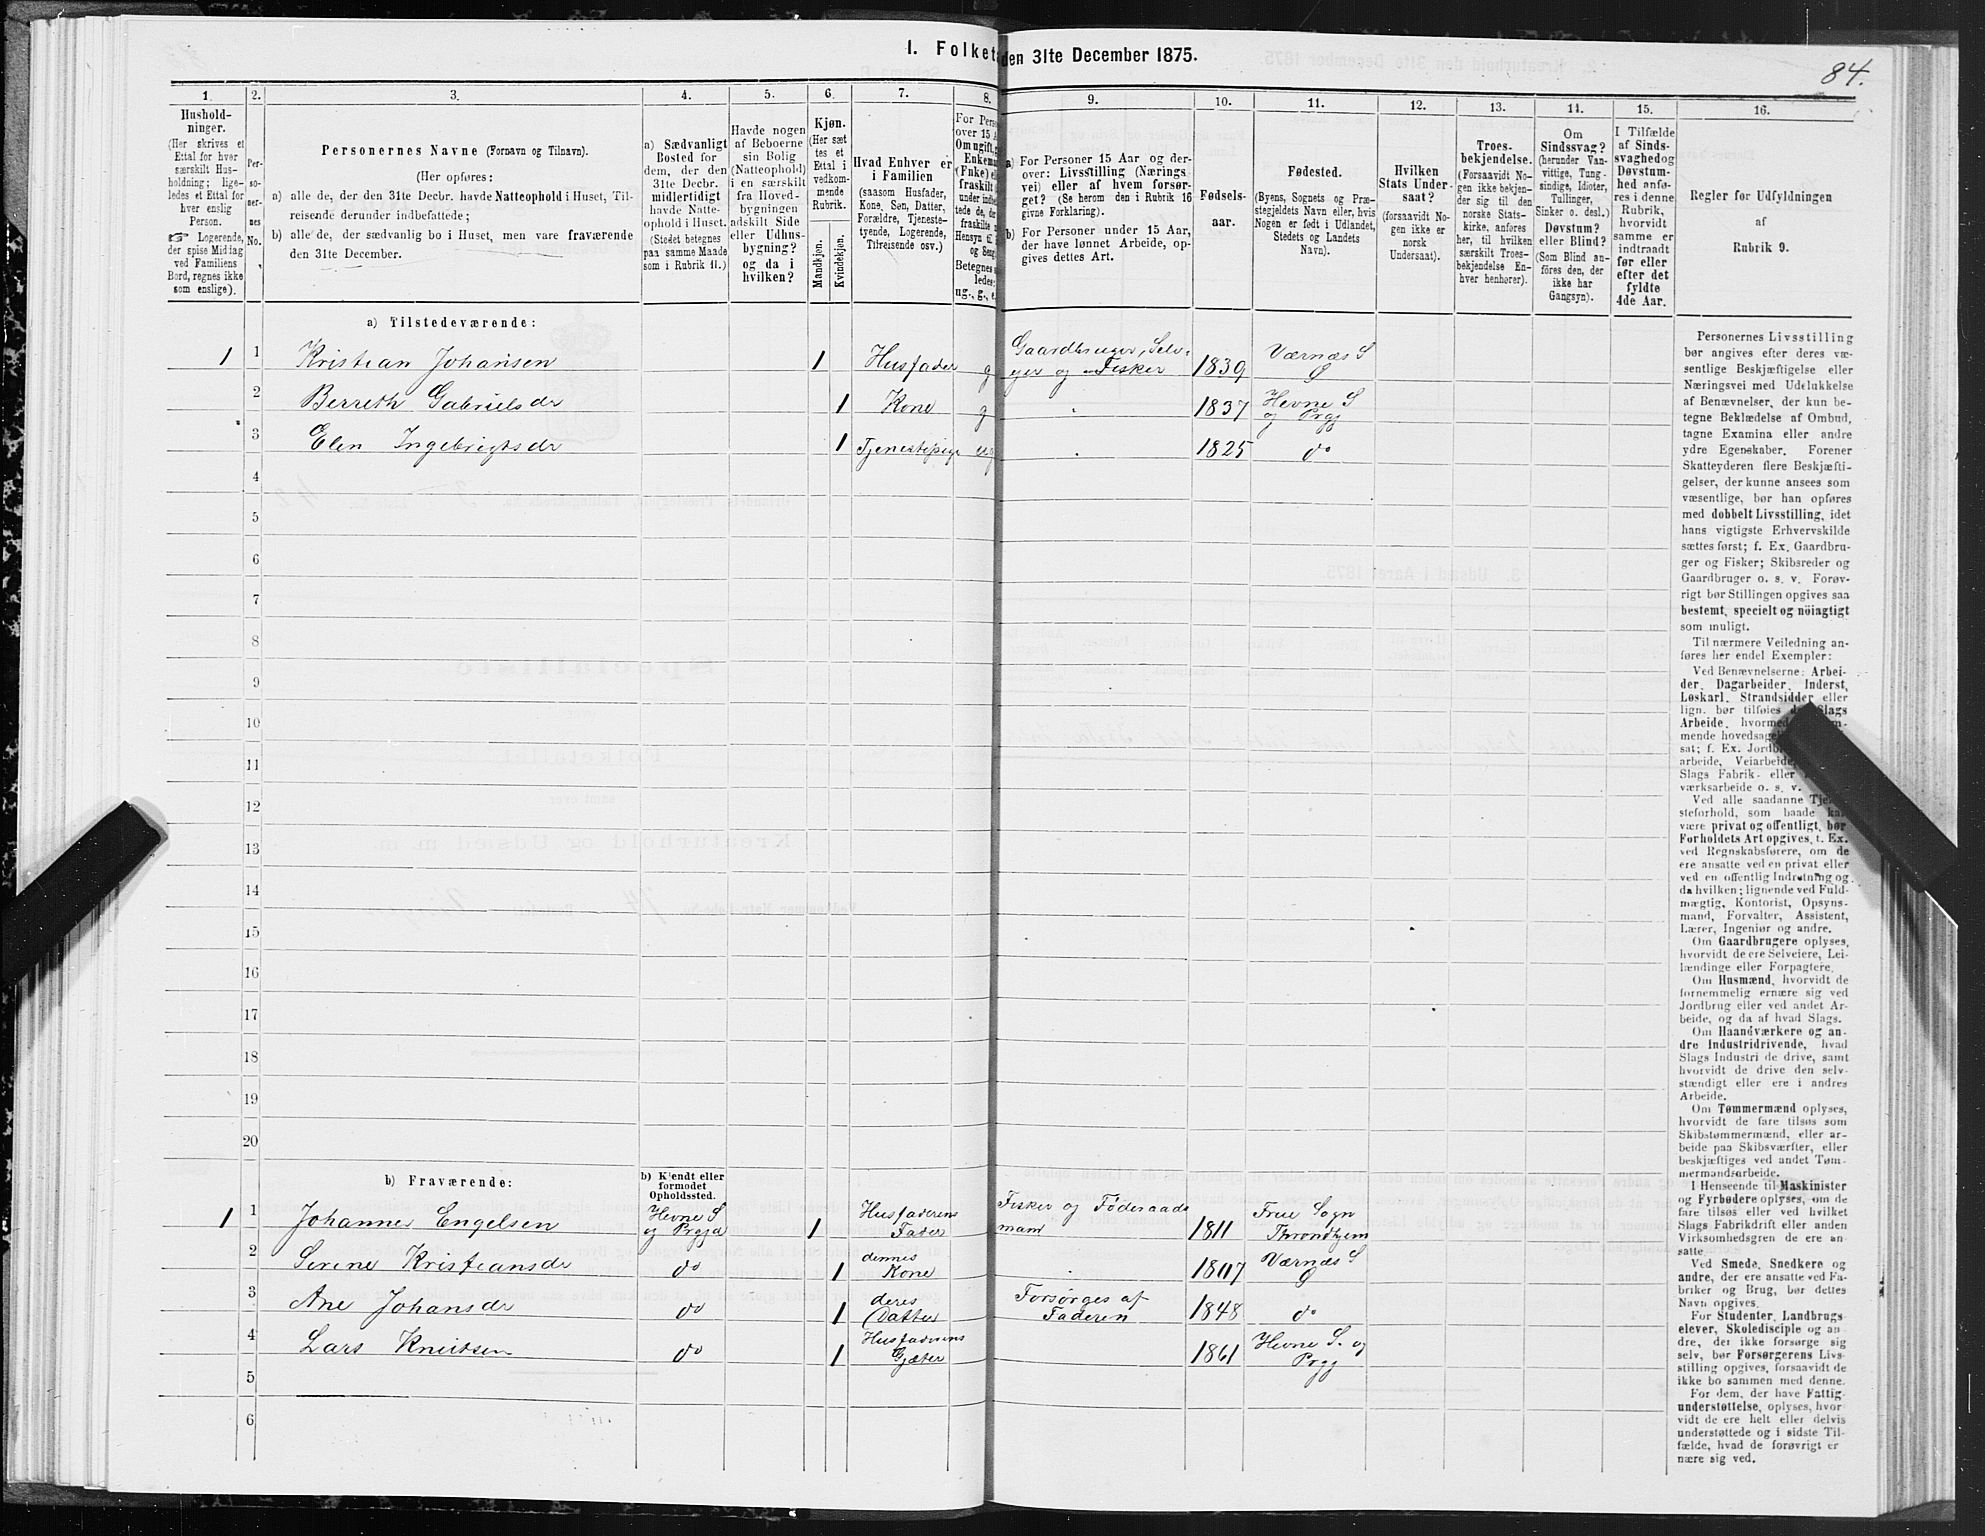 I. Folket
den 31te December 1875.
84.
1.
2.
3.
4.
5.
6.
7.
8.
9.
10.
11.
12.
13.
14.
15.
16.
Hushold-
ninger.
(Her skrives et
Ettal for hver
særskilt Hus-
holdning; lige-
ledes et Ettal for
hver enslig
Person.
☞ Logerende,
der spise Middag
ved Familiens
Bord, regnes ikke
som enslige).
Per-
so-
ner-
nes
No.
Personernes Navne (Fornavn og Tilnavn).
(Her opføres:
a) alle de, der den 31te Decbr. havde Natteophold i Huset, Til-
reisende derunder indbefattede;
b) alle de, der sædvanlig bo i Huset, men vare fraværende
den 31te December.
a) Sædvanligt
Bosted for
dem, der den
31te Decbr.
midlertidigt
havde Natte-
ophold i Huset.
(Stedet betegnes
paa samme Maade
som i Rubrik 11.)
Havde nogen
af Beboerne
sin Bolig
(Natteophold)
i en særskilt
fra Hoved-
bygningen
adskilt Side
eller Udhus-
bygning?
og da i
hvilken?
Kjøn.
(Her sæt
tes et
Ettal i
vedkom-
mende
Rubrik.
Mandkjøn.
Kvindekjøn.
Hvad Enhver er
i Familien
(saasom Husfader,
Kone, Søn, Datter,
Forældre, Tjeneste-
tyende, Logerende,
Tilreisende osv.)
For Perso
over 15 A
Om ugift, g
Enkem
(Enke) e
fraskilt
under indbe
tede de, de
fraskilte
Hensyn til
og Seng
Betegnes
ledes:
ug., g., e
a) For Personer 15 Aar og der-
over: Livsstilling (Nærings
vei) eller af hvem forsør-
get? (Se herom den i Rubrik 16
givne Forklaring).
b) For Personer under 15 Aar,
der have lønnet Arbeide, op-
gives dettes Art.
Fødsels-
aar.
Fødested.
(Byens, Sognets og Præ-
stegjeldets Navn eller, hvis
Nogen er født i Udlandet,
Stedets og Landets
Navn).
Hvilken
Stats Under-
saat?
(forsaavidt No-
gen ikke er
norsk
Undersaat).
Troes-
bekjendelse.
(Forsaavidt No-
gen ikke bekjen-
der sig til den
norske Stats-
kirke, anføres
her, til hvilken
særskilt Troes-
bekjendelse En-
hver henhører).
Om
Sindssvag?
(herunder Van-
vittige, Tung-
sindige, Idioter,
Tullinger,
Sinker o. desl.)
Døvstum?
eller Blind?
(Som Blind an-
føres den, der
ikke har
Gangsyn).
I Tilfælde
af Sinds-
svaghed og
Døvstum-
hed anfø-
res i denne
Rubrik,
hvorvidt
samme er
indtraadt
før eller
efter det
fyldte
4de Aar.
Regler for Udfyldningen
af
Rubrik 9.
a) Tilstedeværende:
1 1 Kristian Johansen 1 Husfader g Gaardbruger, Selv-
eier og Fisker 1839 Værnæs S
Ø
2 Berreth Gabrielsdr 1 Kone g 1837 Hevne S
og Prgj
3 Elen Ingebrigtsdr 1 Tjenestepige ug 1825 do
4
5
6
7
8
9
10
11
12
13
14
15
16
17
18
19
20
b) Fraværende:
b) Kjendt eller
formodet
Opholdssted.
1 1 Johannes Engelsen Hevne S
og Prgjd 1 Husfaderens
Fader Fisker og Föderaads
mand 1811 Frue Sogn
Throndhjem
2 Serine Kristiansdr do 1 dennes
Kone Værnæs S
Ø
3 Ane Johansdr do 1 deres
Datter Forsørges af
Faderen 1848 do
4 Lars Knutsen do 1 Husfaderens
Gjæter 1861 Hevne S. og
Prgj
5
6
Personernes Livsstilling
bør angives efter deres væ-
sentlige Beskjæftigelse eller
Næringsvei med Udelukkelse
af Benævnelser, der kun be-
tegne Beklædelse af Ombud,
tagne Examina eller andre
ydre Egenskaber. Forener
Skatteyderen flere Beskjæfti-
gelser, der kunne ansees som
væsentlige, bør han opføres
med dobbelt Livsstilling, idet
hans vigtigste Erhvervskilde
sættes først; f. Ex. Gaardbru-
ger og Fisker; Skibsreder og
Gaardbruger o. s. v. Forøv-
rigt bør Stillingen opgives saa
bestemt, specielt og nöiagtigt
som muligt.
Til nærmere Veiledning an-
føres her endel Exempler:
Ved Benævnelserne: Arbei-
der, Dagarbeider, Inderst,
Løskarl, Strandsidder eller
lign. bør tilføies Slags
Arbeide, hvormed
mende hovedsag
sat; f. Ex. Jordb
arbeide, Veiarbeide
Slags Fabrik- eller
værksarbeide o. s. v.
Ved alle saadanne Tje
steforhold, som baade
være privat og offentligt, bør
Forholdets Art opgives, t. Ex.
ved Regnskabsførere, om de
ere ansatte ved en privat eller
ved en offentlig Indretning og
da hvilken; lignende ved Fuld-
mægtig, Kontorist, Opsyns-
mand, Forvalter, Assistent,
Lærer, Ingeniør og andre.
Om Gaardbrugere oplyses,
hvorvidt de ere Selveiere, Lei-
lændinge eller Forpagtere.
Om Husmænd, hvorvidt de
fornemmelig ernære sig ved
Jordbrug eller ved andet Ar-
beide, og da af hvad Slags.
Om Haandværkere og an-
dre Industridrivende, hvad
Slags Industri de drive, samt
hvorvidt de drive den selv-
stændigt eller ere i andres
Arbeide.
Om Tømmermænd oplyses,
hvorvidt de fare tilsøs som
Skibstømmermænd, eller ar-
beide paa Skibsværfter, eller
beskjæftiges ved andet Tøm-
mermandsarbeide.
I Henseende til Maskinister
og Fyrbødere oplyses, om de
fare tilsøs eller ved hvilket
Slags Fabrikdrift eller anden
Virksomhedsgren de ere an-
satte.
Ved Smede, Snedkere og
andre, der ere ansatte ved Fa-
briker og Brug, bør dettes
Navn opgives.
For Studenter, Landbrugs-
elever, Skoledisciple og an-
dre, der ikke forsørge sig
selv, bør Forsørgerens Livs-
stilling opgives, forsaavidt de
ikke bo sammen med denne.
For dem, der have Fattig-
understøttelse, oplyses, hvor
vidt de ere helt eller delvis
understøttede og i sidste Til-
fælde, hvad de forøvrigt er
nære sig ved.